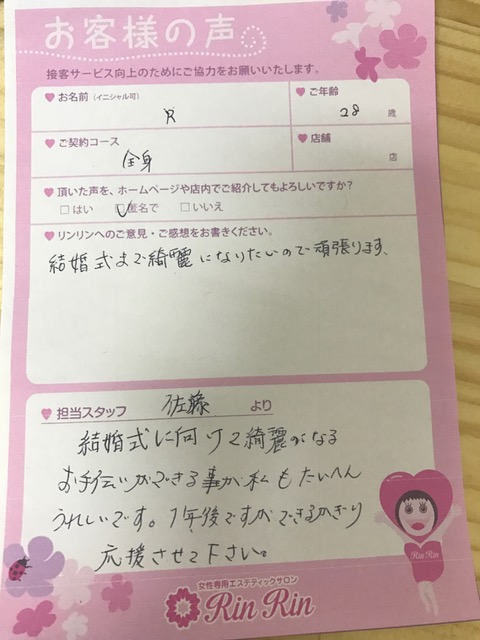 お客様の声
接客サービス向上のためにご協力をお願いいたします。
お名前（イニシャル可）
R
ご年齢
28 歳
ご契約コース
全身
店舗
店
頂いた声を、ホームページや店内でご紹介してもよろしいですか？
□はい □匿名で □いいえ
リンリンへのご意見・ご感想をお書きください。
結婚式まで綺麗になりたいので頑張ります、
担当スタッフ 佐藤 より
結婚式に向けて綺麗になる
お手伝いができる事が私もたいへん
うれしいです。1年後ですができるかぎり
応援させて下さい。
Rin Rin
女性専用エステティックサロン
Rin Rin